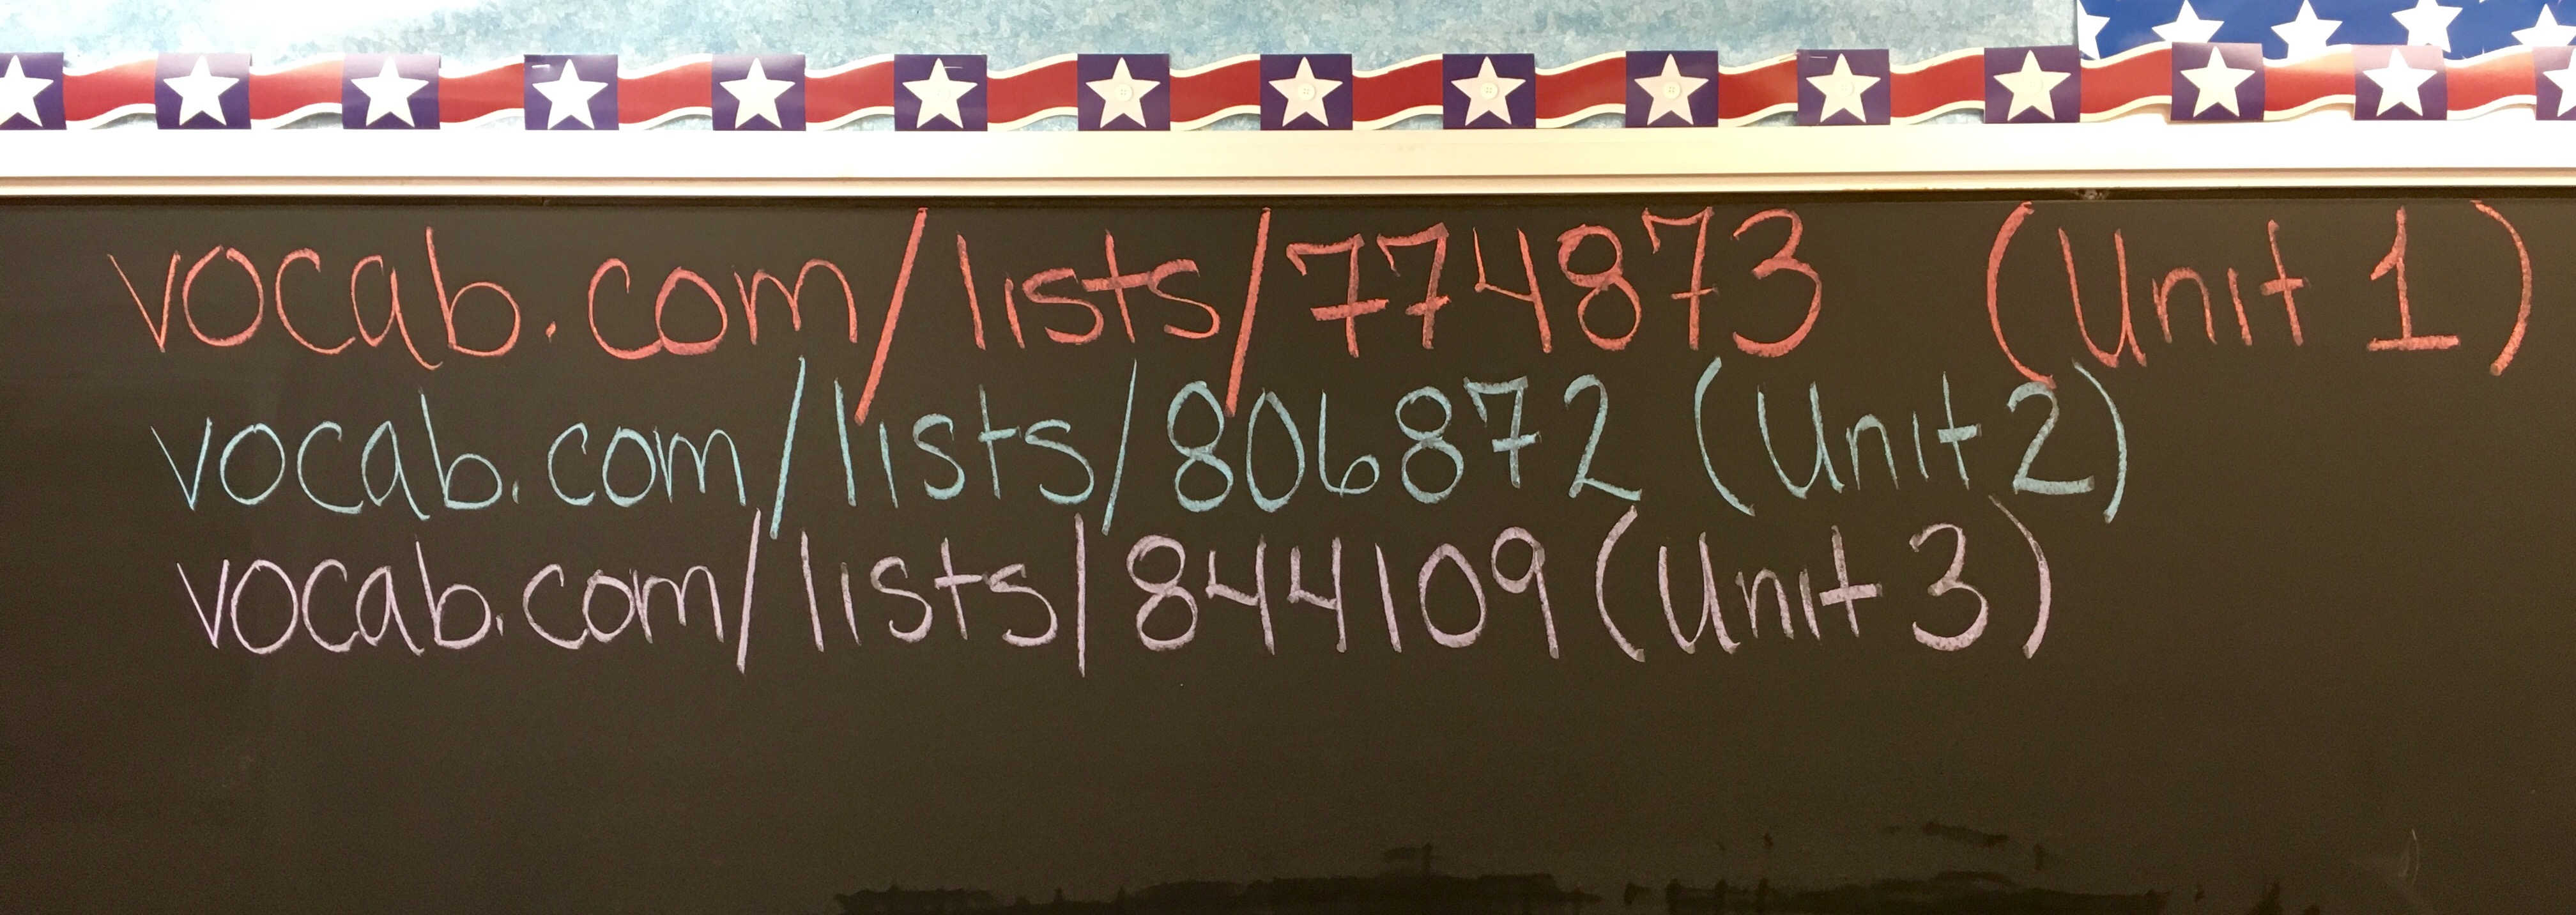 vocab.com/lists/774873 (Unit 1)
vocab.com/lists/806872 (Unit 2)
vocab.com/lists/844109 (Unit 3)